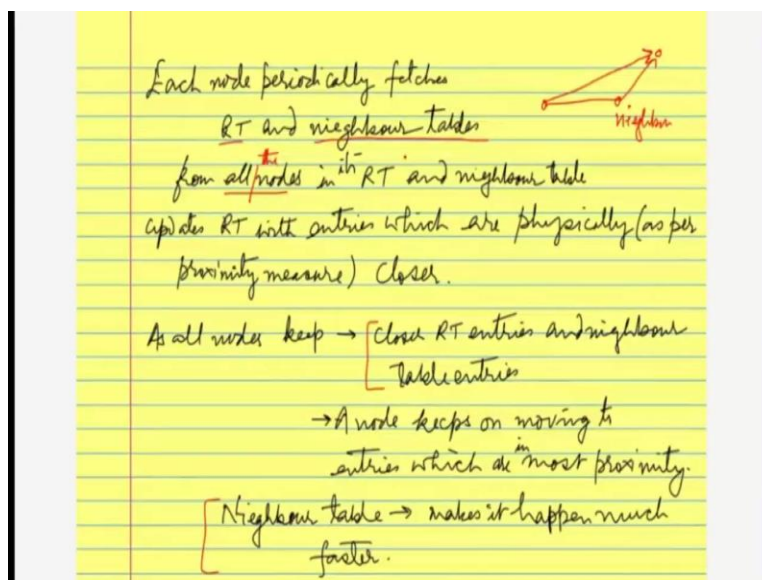 Each node periodically fetches
RT and nieghbour tables
from all the nodes in its RT and nieghbour table
updates RT with entries which are physically (as per
proximity measure) closer.
As all nodes keep → closer RT entries and nieghbour
table entries
→ A node keeps on moving to
entries which are in most proximity.
Nieghbour table → makes it happen much
faster.
Nieghbour